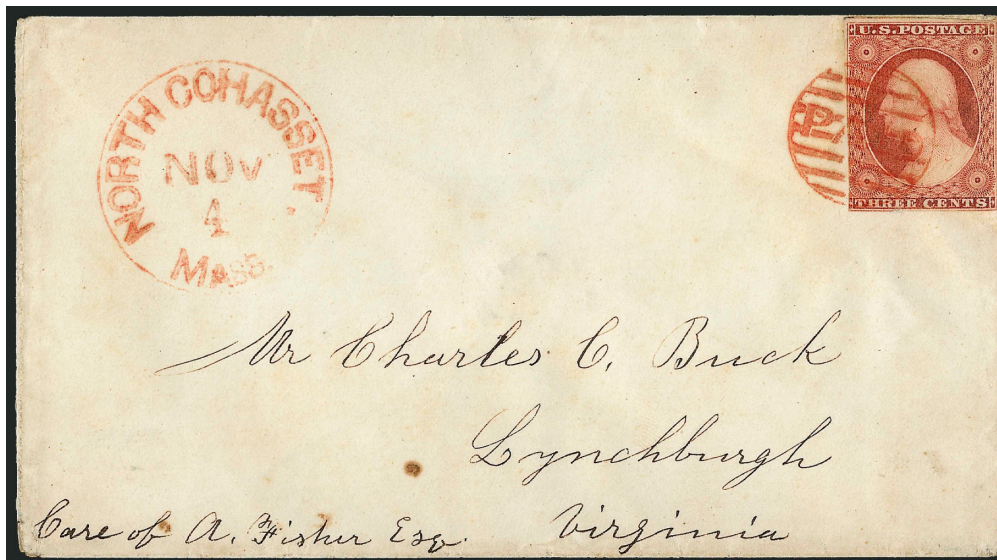 NORTH COHASSET.
NOV
4
MASS.
U.S. POSTAGE
THREE CENTS
Mr Charles C. Buck
Lynchburgh
Virginia
Care of A. Fisher Esqr.